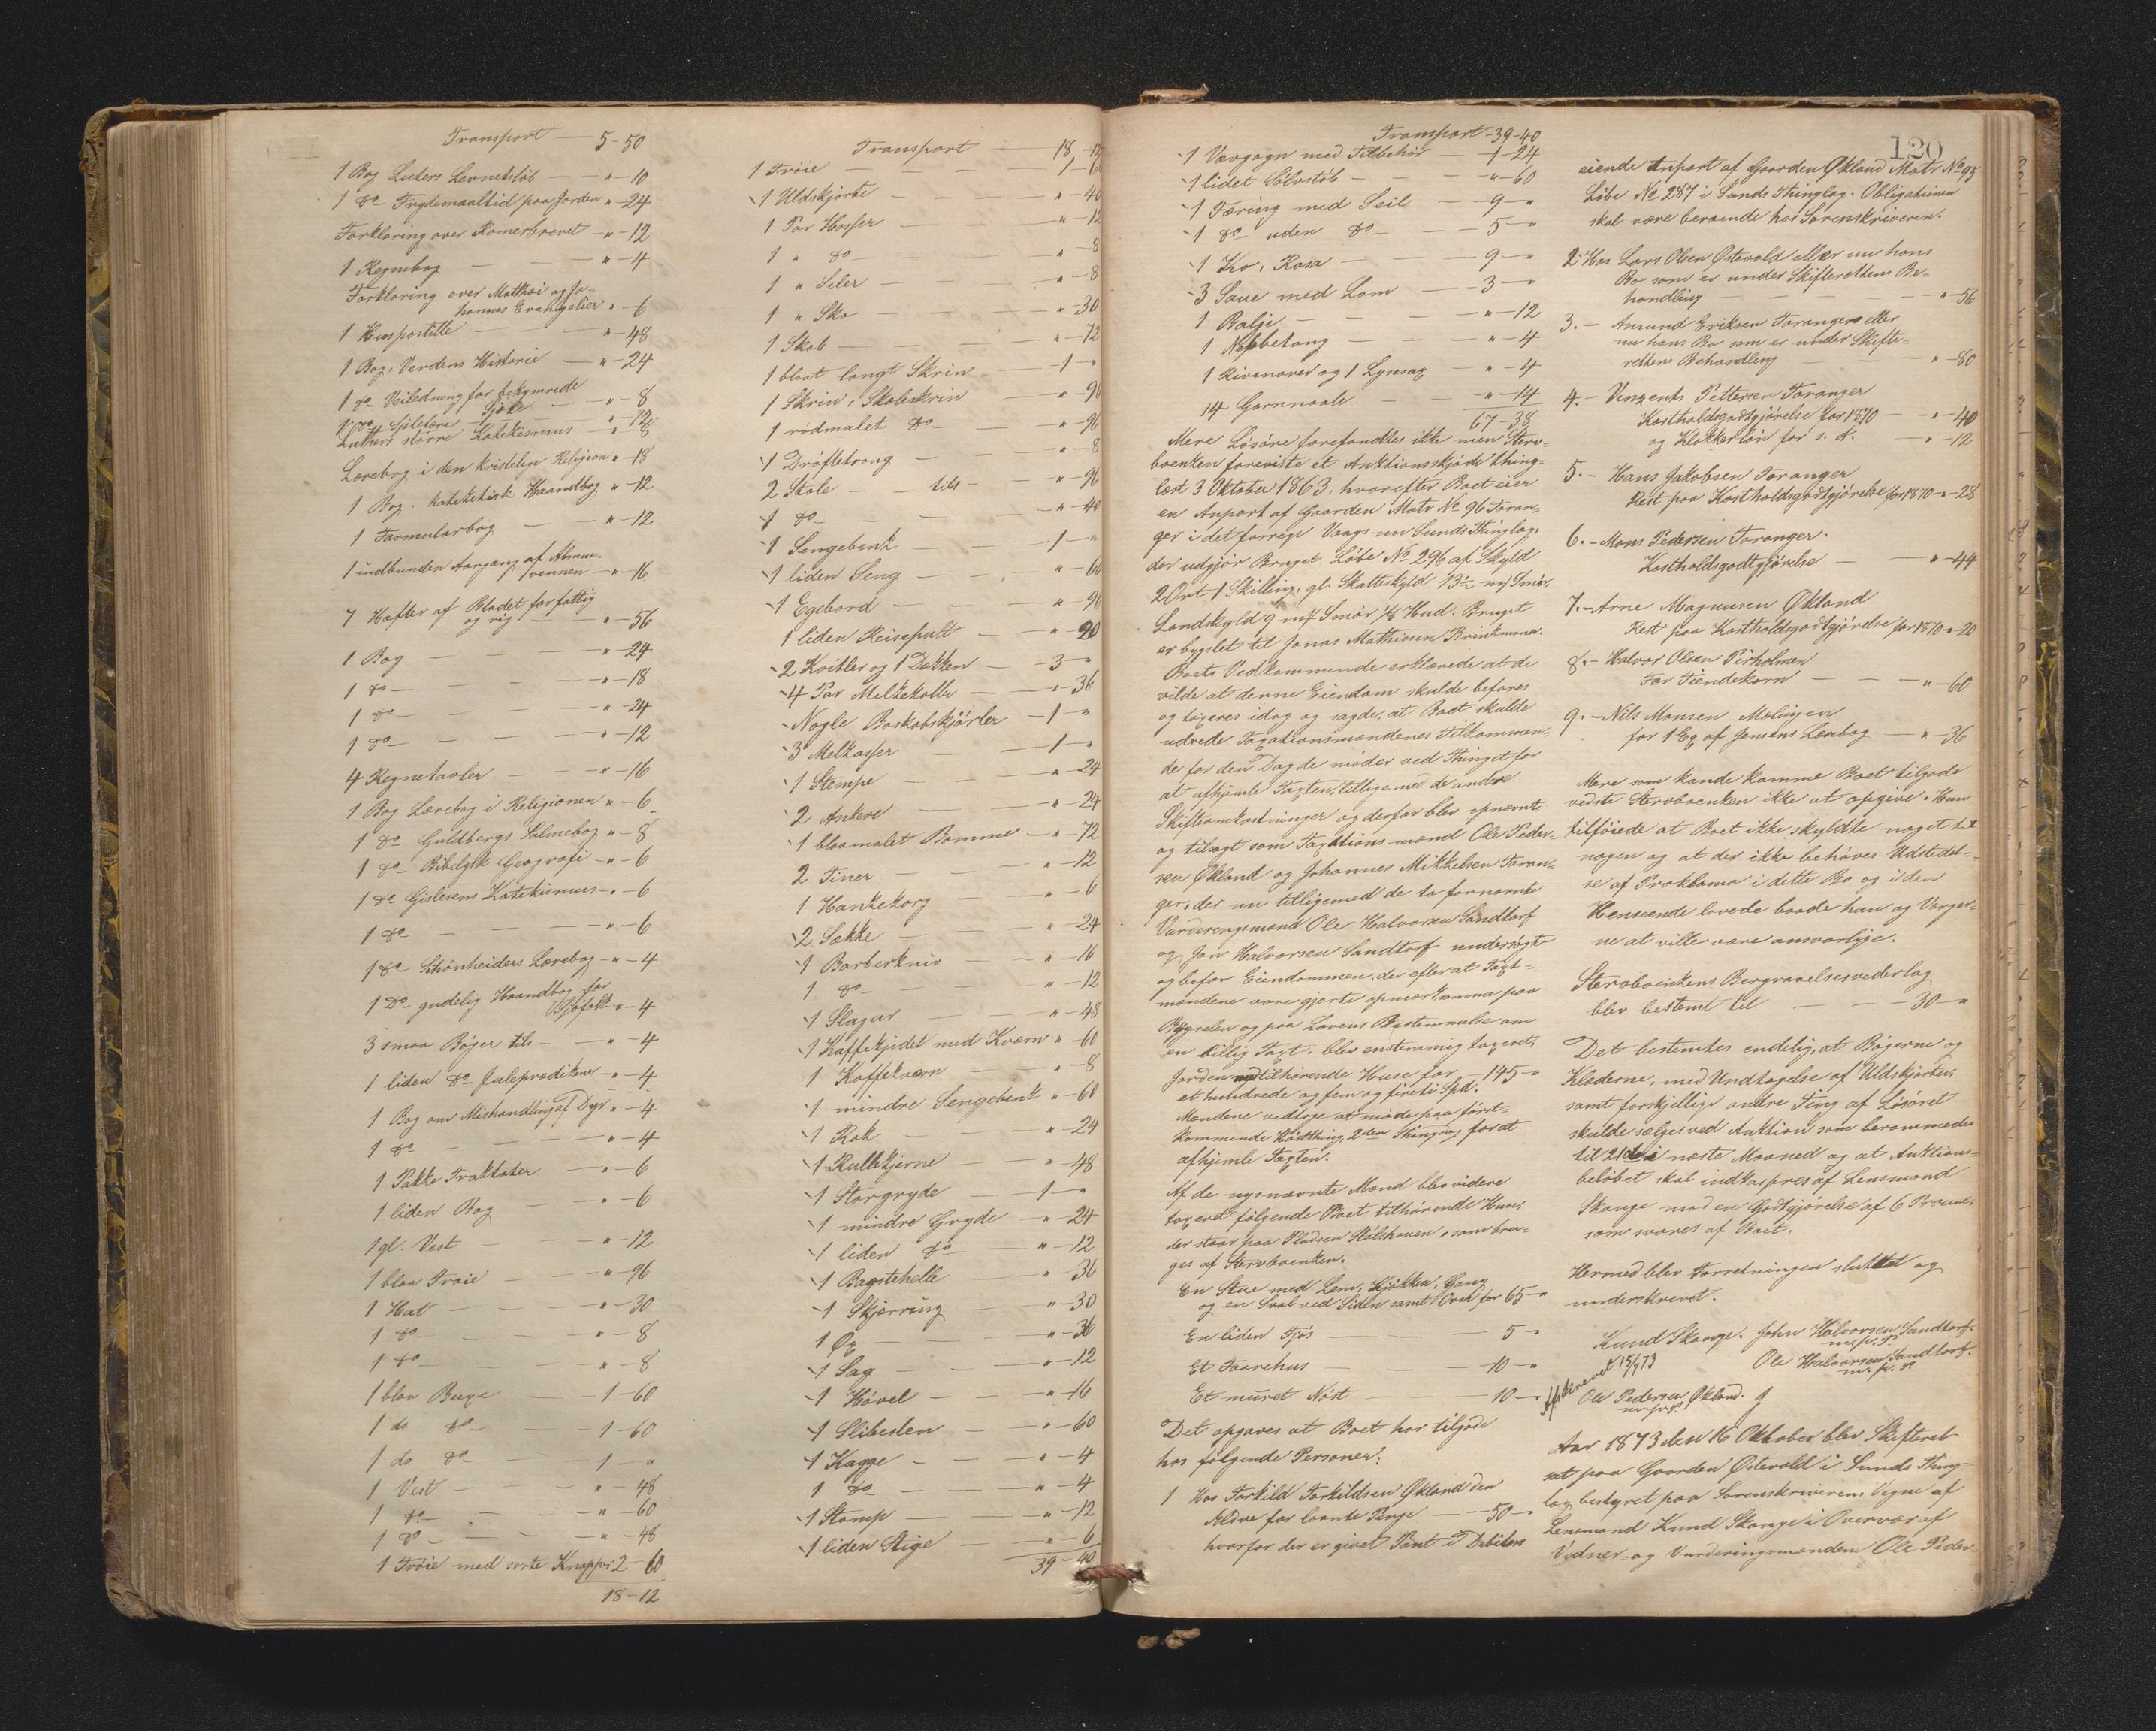 Transport — 5-50
1 Bog Luters Levnetsløb — " -10
1 do Frydemaaltid paa Jorden " -24
Forklaring over Romerbrevet — " -12
1 Regnebog — " -4
Forklaring over Matthæi og Jo=
hannes Evangelier " -6
1 Huspostille — " -48
1 Bog, Verdens Historie — " -24
1 do Veiledning for bekymrede
Sjæle — " -8
1 do — " -12
Luthers større Katekismus — " -8
Lærebog i den kristelige Religion " -18
1 Bog. katekitisk Haandbog " -12
1 Formularbog — " -12
1 indbunden Aargang af Almue=
vennen — " -16
7 Hefter af Bladet for fattig
og rig — " -56
1 Bog — " -24
1 do — " -18
1 do — " -24
1 do — " -12
4 Regnetavler — " -16
1 Bog Lærebog i Religionen " -6
1 do Guldbergs Salmebog " -8
1 do Bibelsk Geografi — " -6
1 do Gislesens Katekismus — " -6
1 do — " -6
1 do Schønheiders Lærebog — " -4
1 do gudelig Haandbog for
Sjøfolk — " -4
3 smaa Bøger tils — " -4
1 liden do Juleprædikener — " -4
1 Bog om Mishandling af Dyr " -4
1 do — " -4
1 Pakke Traktater — " -6
1 liden Bog — " -6
1 gl. Vest — " -12
1 blaa Trøie — " -96
1 Hat — " -30
1 do — " -8
1 do — " -8
1 blaa Buxe — 1-60
1 do do — 1-60
1 do do — 1 - "
1 Vest — " -48
1 do — " -60
1 do — " -48
1 Trøie med sorte Knapper 2-60
18-12
Transport — 18-12
1 Trøie — 1-6
1 Uldskjorte — " -40
1 Par Hoser — " -12
1 " do — " -8
1 " Seler — " -8
1 " Sko — " -30
1 Skab — " -72
1 blaat langt Skrin — 1 - "
1 Skrin, Skoleskrin — " -96
1 rødmalet do — " -96
1 Drøftetroug — " -8
2 Stole — tils — " -96
1 do — " -40
1 Sengebenk — 1 - "
1 liden Seng — " -60
1 Egebord — " -96
1 liden Reisepult — " -90
2 Kvitler og 1 Dekken — 3 - "
4 Par Melkekoller — " -36
Nogle Boskabskjørler — 1 - "
3 Melkasser — 1 - "
1 Stempe — " -24
2 Ankere — " -24
1 blaamalet Bomme — " -72
2 Tiner — " -12
1 Hankekorg — " -6
2 Sække — " -24
1 Barberkniv — " -16
1 do — " -12
1 Slagur — " -48
1 Kaffekjedel med Kværn " -60
1 Kaffekværn — " -8
1 mindre Sengebenk " -60
1 Rok — " -24
1 Rullekjerne — " -48
1 Storgryde — 1 - "
1 mindre Gryde — " -24
1 liden do — " -12
1 Bagstehelle — " -36
1 Skjerring — " -30
1 Øx — " -36
1 Sag — " -12
1 Høvel — " -16
1 Slibesten — " -60
1 Kagge — " -4
1 do — " -4
1 Stamp — " -12
1 liden Stige — " -6
39-40
Transport - 39-40
1 Vævgogn med Tilbehør — 1-24
1 lidet Sølvstøb — " -60
1 Færing med Seil — 9 - "
1 do uden do — 5 - "
1 Ko, Rosa — 9 - "
3 Saue med Lam — 3 - "
1 Balje — " -12
1 — " -4
1 Rivenaver og 1 Lysesax — " -4
14 Garnnaale — " -14
67-38
Mere Løsøre forefandtes ikke men Sterv=
boenken foreviste et Auktionsskjøde thing=
læst 3 Oktober 1863, hvorefter Boet eier
en Anport af Gaarden Matr No 96 Foran=
ger i det forrige Vaags- nu Sunds Thinglag,
der udgjør Bruget Løbe No 296 af Skyld
2 Ort 1 Skilling, gl. Skatteskyld 13½ mf Smør,
Landskyld 9 mf Smør ⅛ Hud. Bruget
er bygslet til Jonas Mathiesen Brinkmana.
Boets Vedkommende erklærede at de
vilde at denne Eiendom skulde befares
og taxeres idag og sagde, at Boet skulde
udrede Taxationsmændenes Tilkommen=
de for den Dag de møder ved Thinget for
at afhjemle Taxten, tilligemed de andre
Skifteomkostninger og derfor blev opnævnt
og tilsagt som Taxtions mænd Ole Peder=
sen Økland og Johannes Mikkelsen Foran=
ger, der nu tilligemed de to fornævnte
Vurderingsmænd Ole Halvorsen Sandtorf
og Jon Halvorsen Sandtorf undersøgte
og befor Eiendommen, der efterat Taxt=
mændene vare gjorte opmærksomme paa
Bygselen og paa Lovens Bestemmelse om
en billig Taxt, blev enstemmig taxeret,
Jorden med tilhørende Huse for — 145 - "
et hundrede og fem og firti Spd.
Mændene vedtoge at møde paa først=
kommende Høstthing 2den Thingdag forat
afhjemle Taxten.
Af de nysnævnte Mænd blev videre
taxeret følgende Boet tilhørende Huse,
der staar paa Pladsen Støtshauen, som bru=
ges af Stervboenken.
En Stue med Lem, Kjøkken, Gang
og en Sval ved Siden samt Ovn for 65 - "
En liden Fjøs — 5 - "
Et Faarehus — 10 - "
Et muret Nøst — 10 - "
Det opgaves at Boet har tilgode
hos følgende Personer:
1 Hos Torkild Torkildsen Økland den
Ældre for laante Penge — 50 - "
hvorfor der er givet Pant i Debitors
120
eiende Anport af Gaarden Økland Matr No 95
Løbe No 287 i Sunds Thinglag. Obligationen
skal være beroende hos Sorenskriveren.
2. Hos Lars Olsen Østevold eller nu hans
Bo som er under Skifterettens Be=
handling — " -56
3. — Amund Eriksen Foranger eller
nu hans Bo som er under Skifte=
rettens Behandling — " -80
4. — Vinzents Pettersen Foranger
Kostholdsgodtgjørelse for 1870 — " -40
og Klokkerløn for s. A. — " -12
5. — Hans Jakobsen Foranger
Rest paa Kostholdsgodtgjørelse for 1870 - " -28
6. — Mons Pedersen Foranger.
Kostholdsgodtgjørelse — " -44
7. — Arne Magnusen Økland
Rest paa Kostholdsgodtgjørelse for 1870 " -20
8. — Halvor Olsen Pirholmen
For Tiendekorn — " -60
9. — Nils Monsen Møkingen
for 1 Ex af Jensens Læsebog — " -36
Mere som kunde komme Boet tilgode
vidste Stervboenken ikke at opgive. Hun
tilføiede at Boet ikke skyldte noget til
nogen og at der ikke behøves Udstedel=
se af Proklama i dette Bo og i den
Henseende lovede baade han og Verger=
ne at ville være ansvarlige.
Stervboenkens Begravelsesvederlag
blev bestemt til — 30 - "
Det bestemtes endelig, at Bøgerne og
Klæderne, med Undtagelse af Uldskjorten,
samt forskjellige andre Ting af Løsøret
skulde sælges ved Auktion som berammedes
til 21de i næste Maaned og at Auktions=
beløbet skal indkasseres af Lensmand
Skauge mod en Godtgjørelse af 6 Procent,
som svares af Boet.
Hermed blev Forretningen sluttet og
underskrevet.
Knud Skauge. John Halvorsen Sandtorf.
m. p. P.
Ole Halvorsen Sandtorf.
m. p. P.
Ole Pedersen Økland.
m. p. P.
Aar 1873 den 16 Oktober blev Skifteret
sat paa Gaarden Østevold i Sunds Thing=
lag bestyret paa Sorenskriverens Vegne af
Lensmand Knud Skauge i Overvær af
Vidner- og Vurderingsmændene Ole Peder